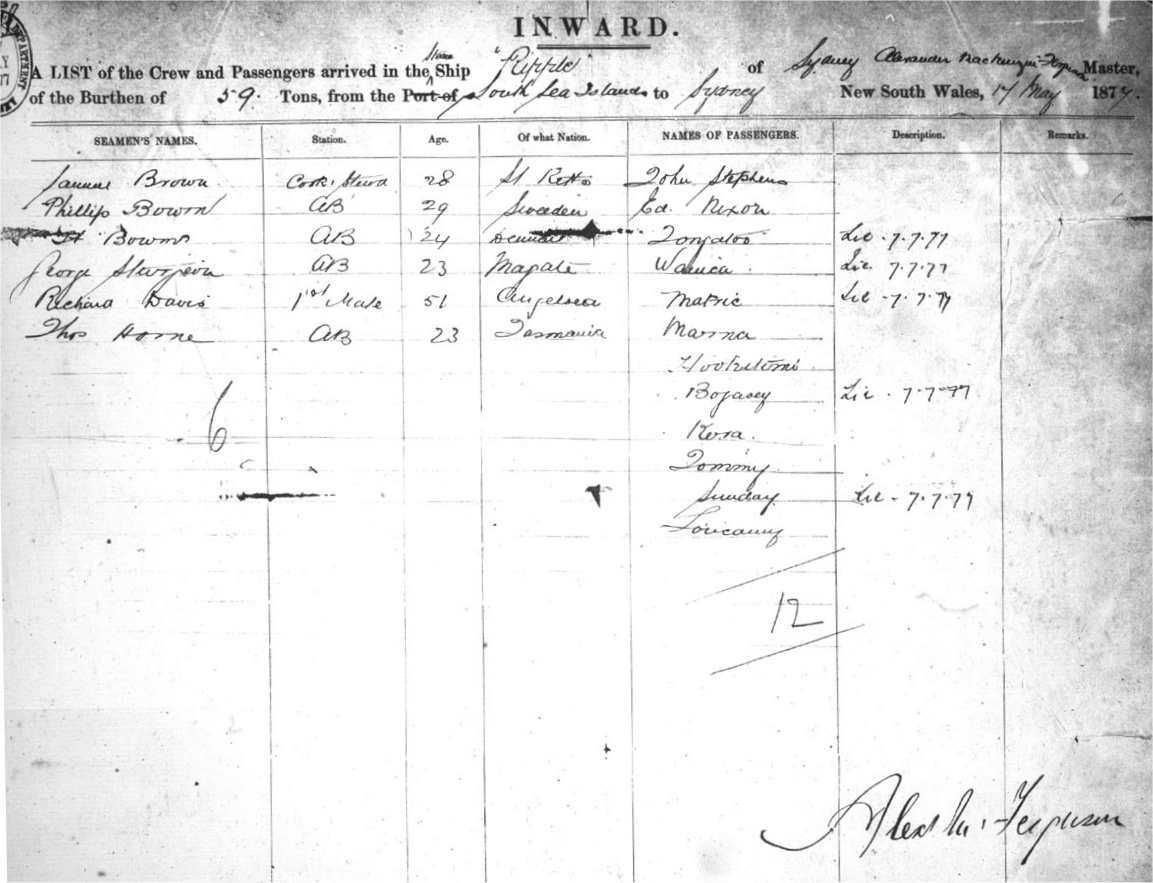 INWARD.
A LIST of the Crew and Passengers arrived in the Steam Ship "Ripple" of Sydney Alexander Mackenzie Ferguson Master,
of the Burthen of 59. Tons, from the Port of South Sea Islands to Sydney New South Wales, 17 May 1877.
SEAMEN'S NAMES. Station. Age. Of what Nation. NAMES OF PASSENGERS. Description. Remarks.
Brown Cook & Stewd 28 St Kitts John Stephens
Phillip Bowrn AB 29 Sweden Ed. Nixon
AB 24 Tongatoo Lie. 7.7.77
George Sturgeon AB 23 Magate Lie. 7.7.77
Richard Davis 1st Mate 51 Angelsea Matric Lie - 7.7.77
Thos Horne AB 23 Tasmania Marna
Bogasey Lie. 7-7-77
6 Kora.
Tommy
Sunday Lie - 7.7.77
12
Alex M. Ferguson